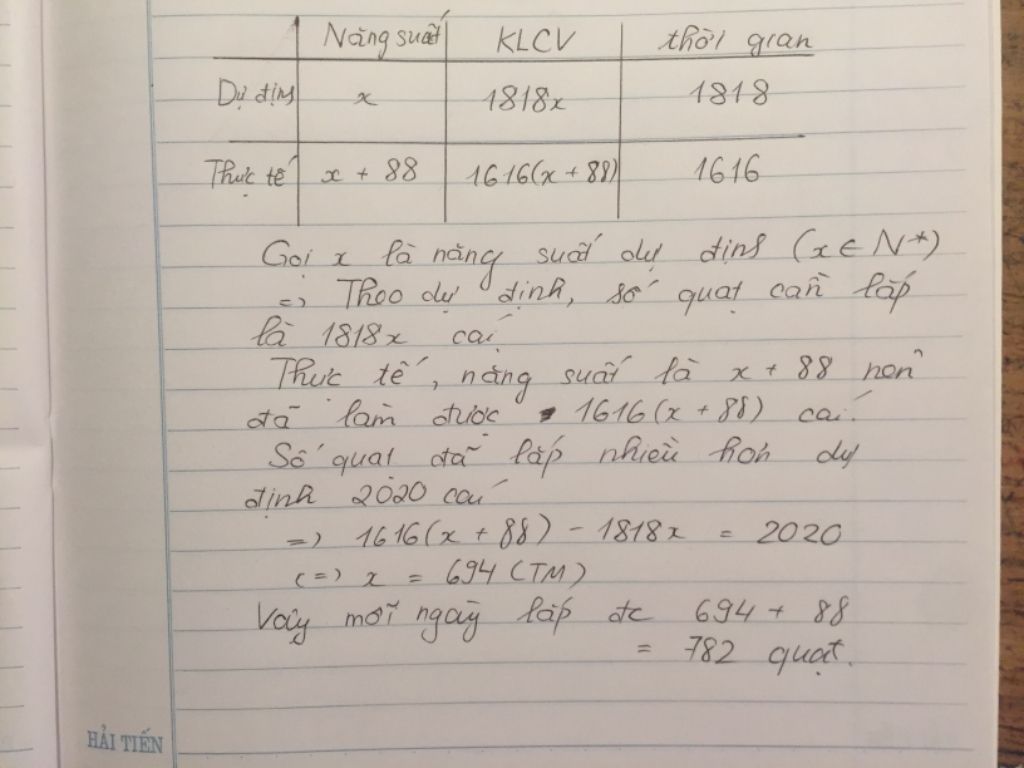 Năng suất KLCV thời gian
Dự định x 1818x 1818
Thực tế x + 88 1616(x + 88) 1616
Gọi x là năng suất dự định (x ∈ N*)
=> Theo dự định, số quạt cần lắp
là 1818x cái
Thực tế, năng suất là x + 88 nên
đã làm được 1616(x + 88) cái.
Số quạt đã lắp nhiều hơn dự
định 2020 cái
=> 1616(x + 88) - 1818x = 2020
(=) x = 694 (TM)
Vậy mỗi ngày lắp đc 694 + 88
= 782 quạt.
HẢI TIẾN